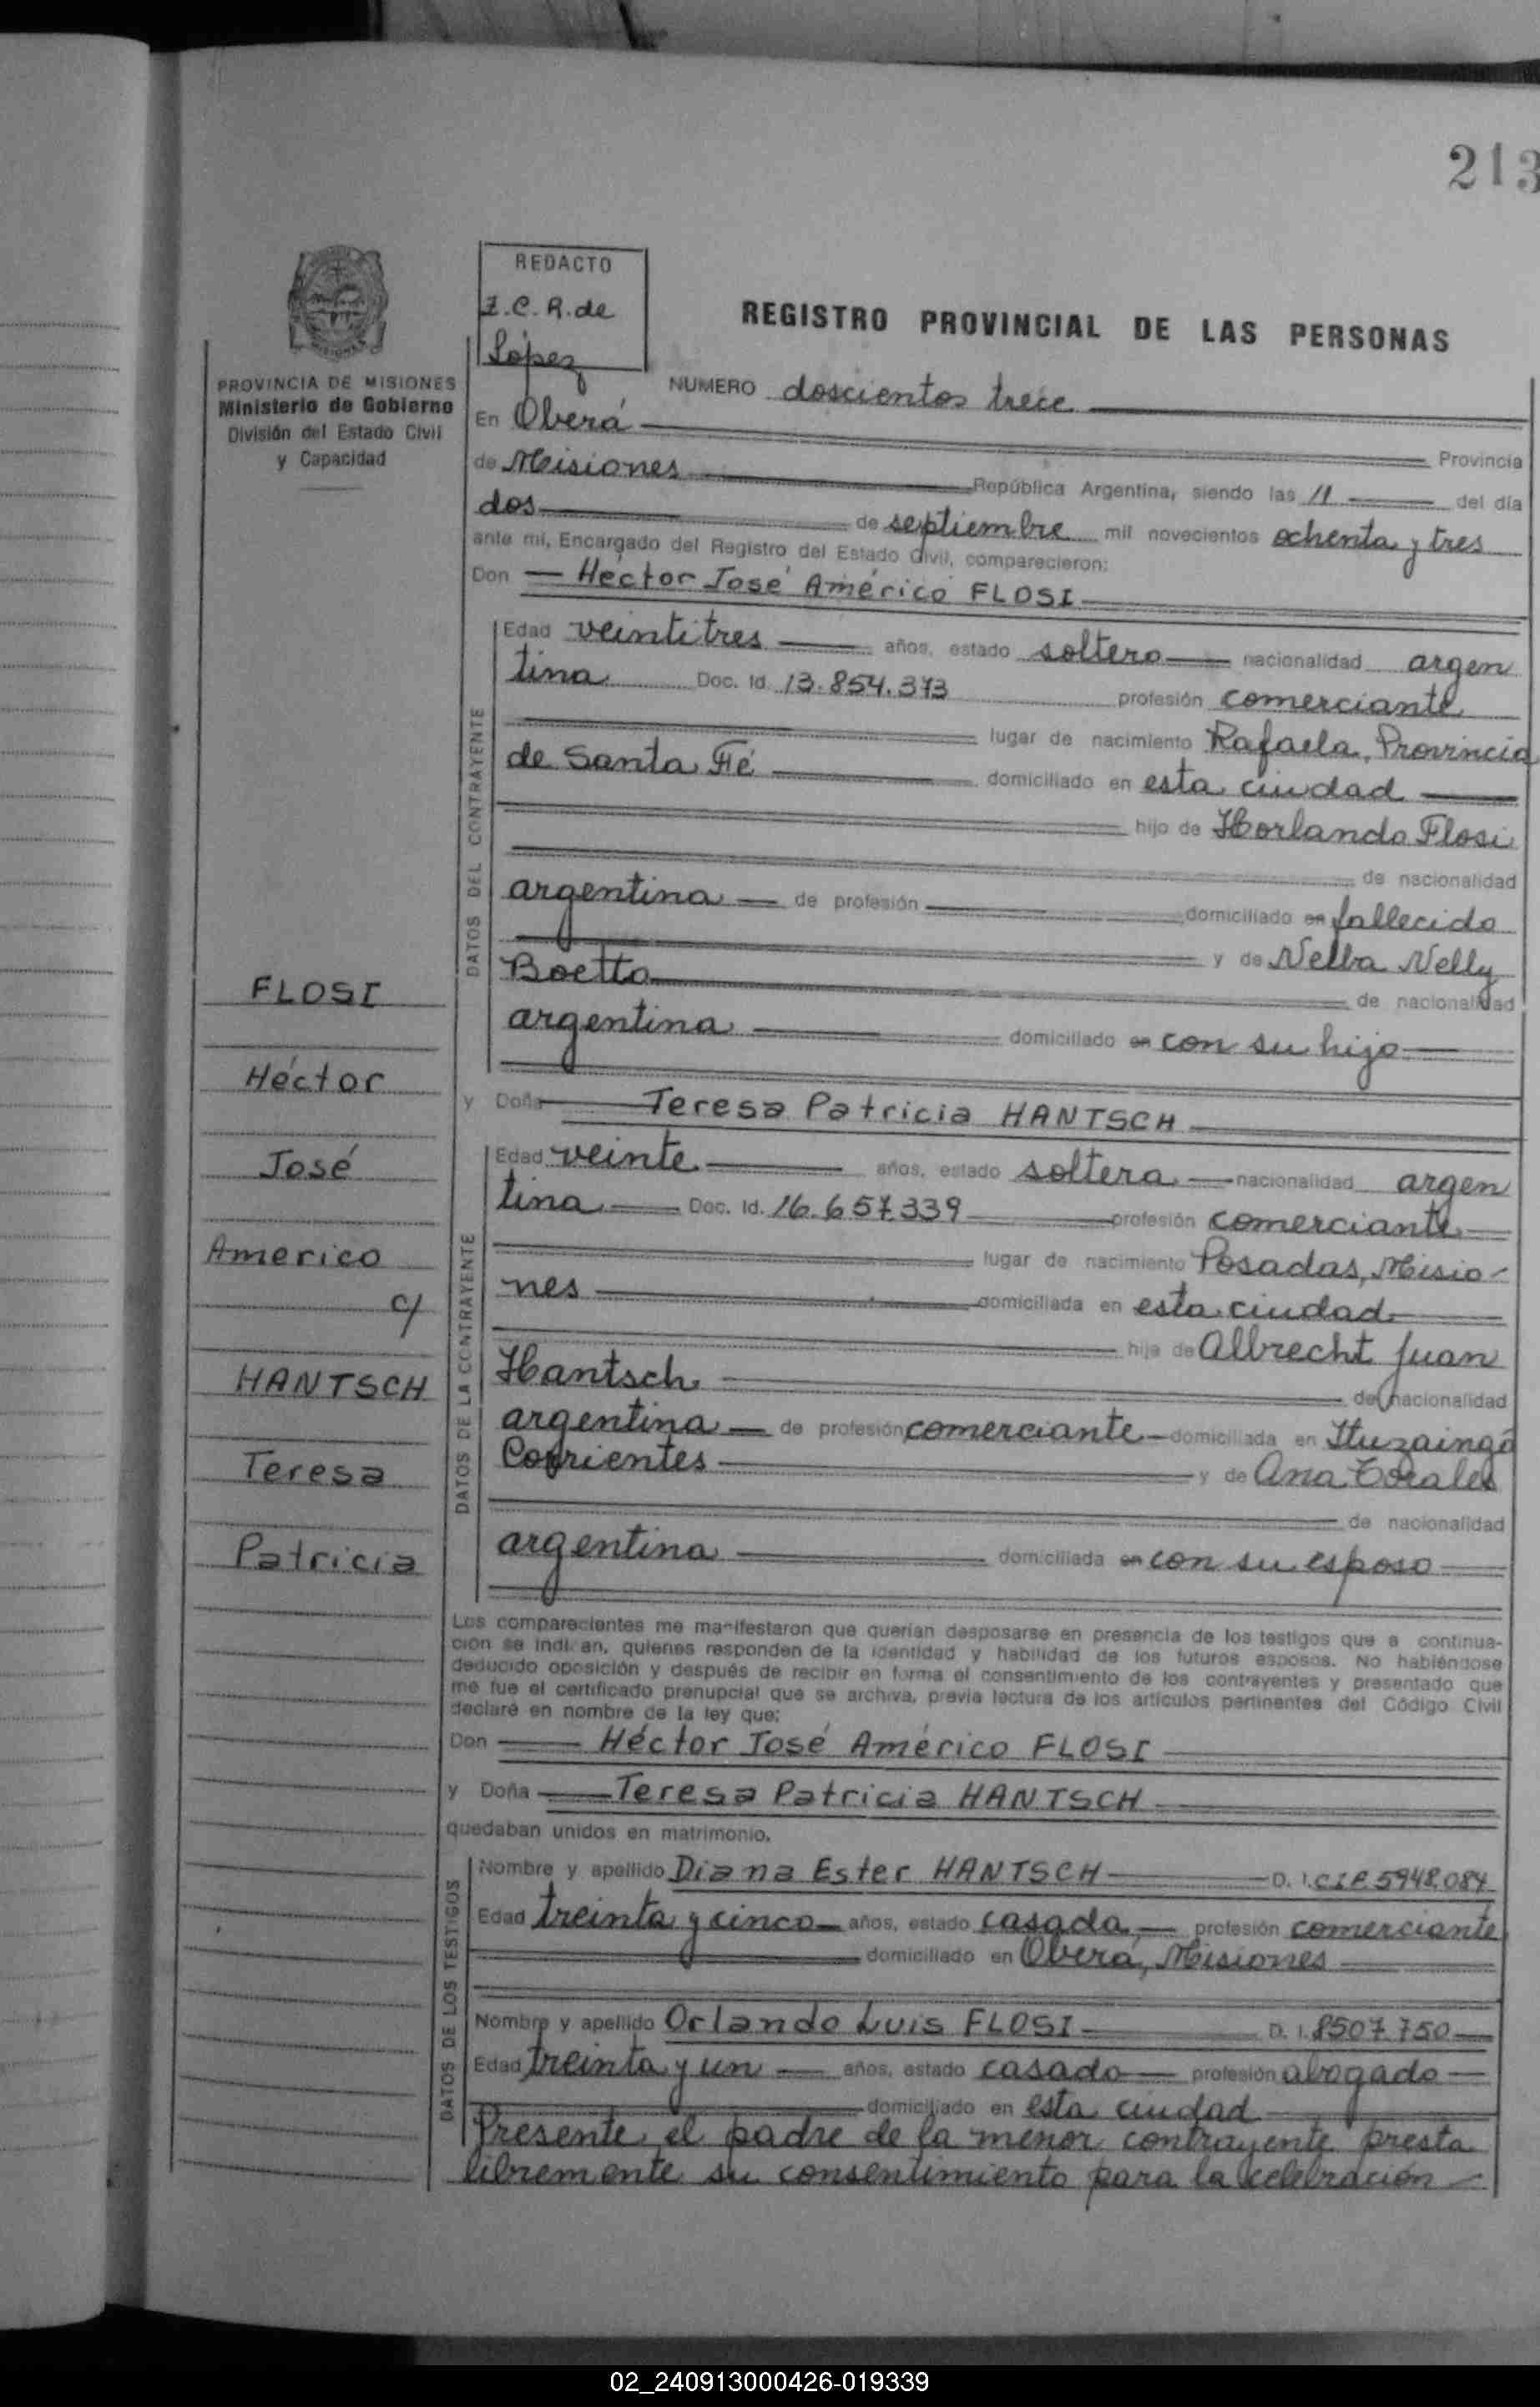 213
REDACTO
Z.C.R. de
López
REGISTRO PROVINCIAL DE LAS PERSONAS
PROVINCIA DE MISIONES
Ministerio de Gobierno
División del Estado Civil
y Capacidad
NUMERO doscientos trece
En Oberá
Provincia
de Misiones República Argentina, siendo las 11 del día
dos de septiembre mil novecientos ochenta y tres
ante mí, Encargado del Registro del Estado Civil, comparecieron:
Don Héctor José Américo FLOSI
DATOS DEL CONTRAYENTE
Edad veintitres años, estado soltero nacionalidad argen
tina Doc. Id. 13.854.373 profesión comerciante
lugar de nacimiento Rafaela, Provincia
de Santa Fé domiciliado en esta ciudad
hijo de Horlando Flosi
de nacionalidad
argentina de profesión domiciliado en fallecido
y de Nelba Nelly
Boetto de nacionalidad
argentina domiciliado en con su hijo
y Doña Teresa Patricia HANTSCH
DATOS DE LA CONTRAYENTE
Edad veinte años, estado soltera nacionalidad argen
tina Doc. Id. 16.657.339 profesión comerciante
lugar de nacimiento Posadas, Misio-
nes domiciliada en esta ciudad
hija de Albrecht Juan
Hantsch de nacionalidad
argentina de profesión comerciante domiciliada en Ituzaingó
Corrientes y de Ana
de nacionalidad
argentina domiciliada en con su esposo
Los comparecientes me manifestaron que querían desposarse en presencia de los testigos que a continua-
ción se indican, quienes responden de la identidad y habilidad de los futuros esposos. No habiéndose
deducido oposición y después de recibir en forma el consentimiento de los contrayentes y presentado que
me fue el certificado prenupcial que se archiva, previa lectura de los artículos pertinentes del Código Civil
declaré en nombre de la ley que:
Don Héctor José Américo FLOSI
y Doña Teresa Patricia HANTSCH
quedaban unidos en matrimonio.
DATOS DE LOS TESTIGOS
Nombre y apellido Diana Ester HANTSCH D. I. C.I.P. 5948.084
Edad treinta y cinco años, estado casada profesión comerciante
domiciliado en Oberá, Misiones
Nombre y apellido Orlando Luis FLOSI D. I. 8507.750
Edad treinta y un años, estado casado profesión abogado
domiciliado en esta ciudad
Presente el padre de la menor contrayente presta
libremente su consentimiento para la celebración
FLOSI
Héctor
José
Americo
c/
HANTSCH
Teresa
Patricia
02_240913000426-019339